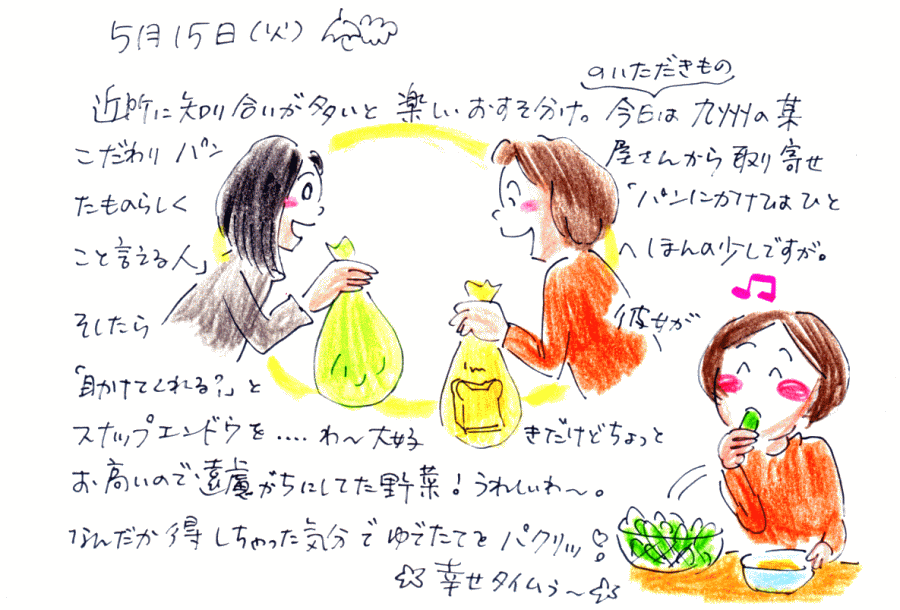 5月15日(火)
のいただきもの
近所に知り合いが多いと楽しいおすそ分け。今日は九州の某
こだわりパン屋さんから取り寄せ
たものらしく「パンにかけてはひと
こと言える人」へほんの少しですが。
そしたら彼女が
「助けてくれる?」と
スナップエンドウを....わ〜大好きだけどちょっと
お高いので遠慮がちにしてた野菜!うれしいわ〜。
なんだか得しちゃった気分でゆでたてをパクリッ
幸せタイムぅ〜